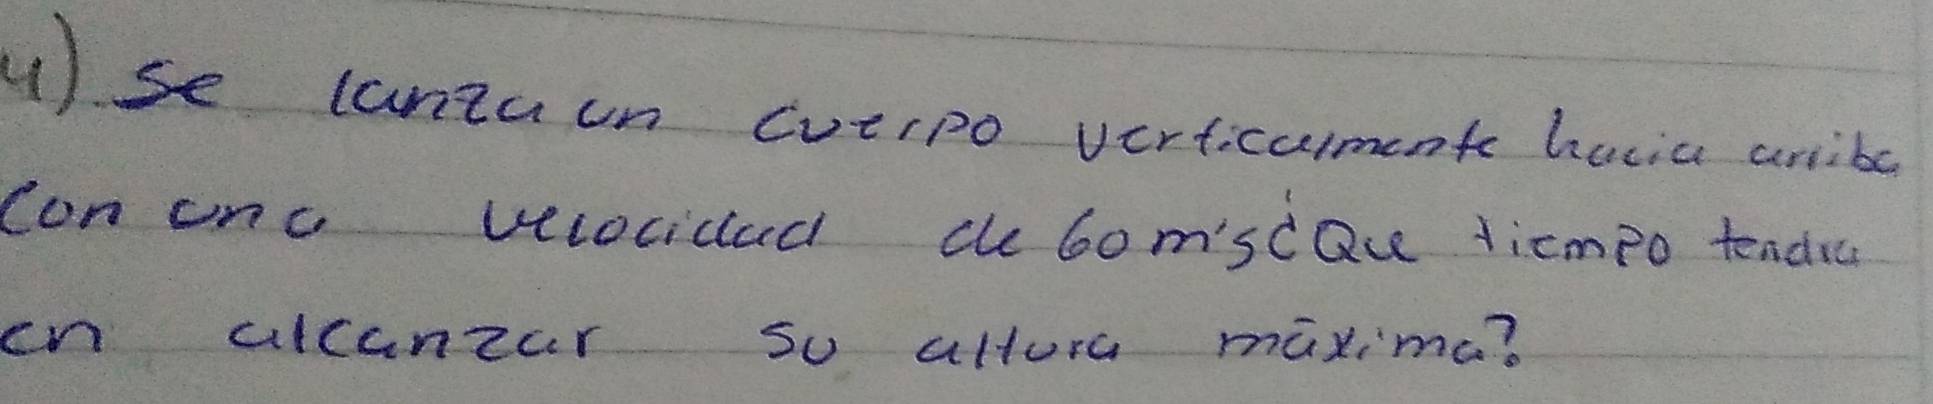 4) Se lanza un cuerpo verticalmente hacia arriba
Con una velocidad de 60 m's ¿Que tiempo tendra
en alcanzar su altura máxima?